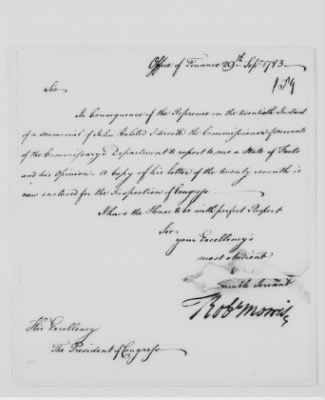 Office of Finance 29th Sepr. 1783
159
Sir
In Consequence of the Reference on the twentieth Instant
of a memorial of John I directed the Commissioner of accounts
of the Commissary's Department to report to me a State of Facts
and his Opinion. A Copy of his Letter of the twenty seventh is
now enclosed for the Inspection of Congress
I have the Honor to be with perfect Respect
Sir
your Excellency's
most obedient
&
humble Servant
Robt Morris
His Excellency
The President of Congress